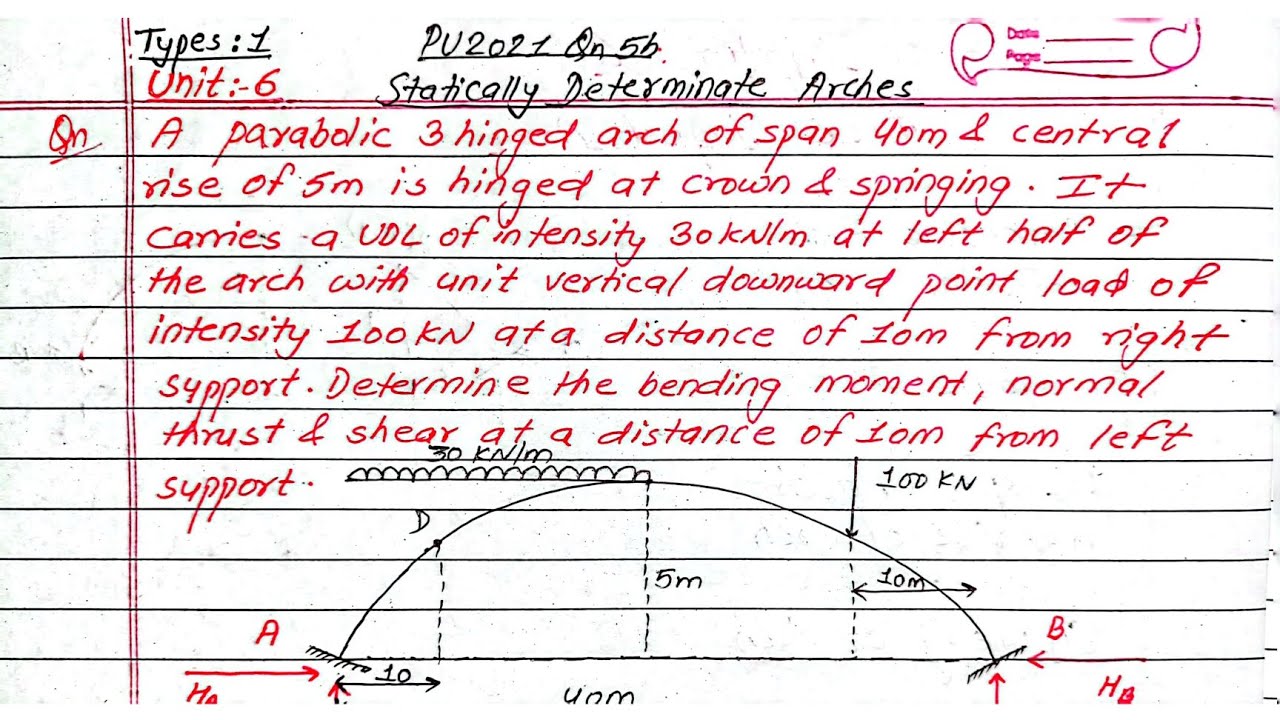 Types:1
PU2021 Qn 5b.
Date
Page
Unit:-6
Statically Determinate Arches
Qn
A parabolic 3 hinged arch of span 40m & central
rise of 5m is hinged at crown & springing. It
carries a UDL of intensity 30KN/m at left half of
the arch with unit vertical downward point load of
intensity 100KN at a distance of 10m from right
support. Determine the bending moment, normal
thrust & shear at a distance of 10m from left
support.
30 KN/m
100 KN
D
5m
10m
A
B
10
40m
HA
HB